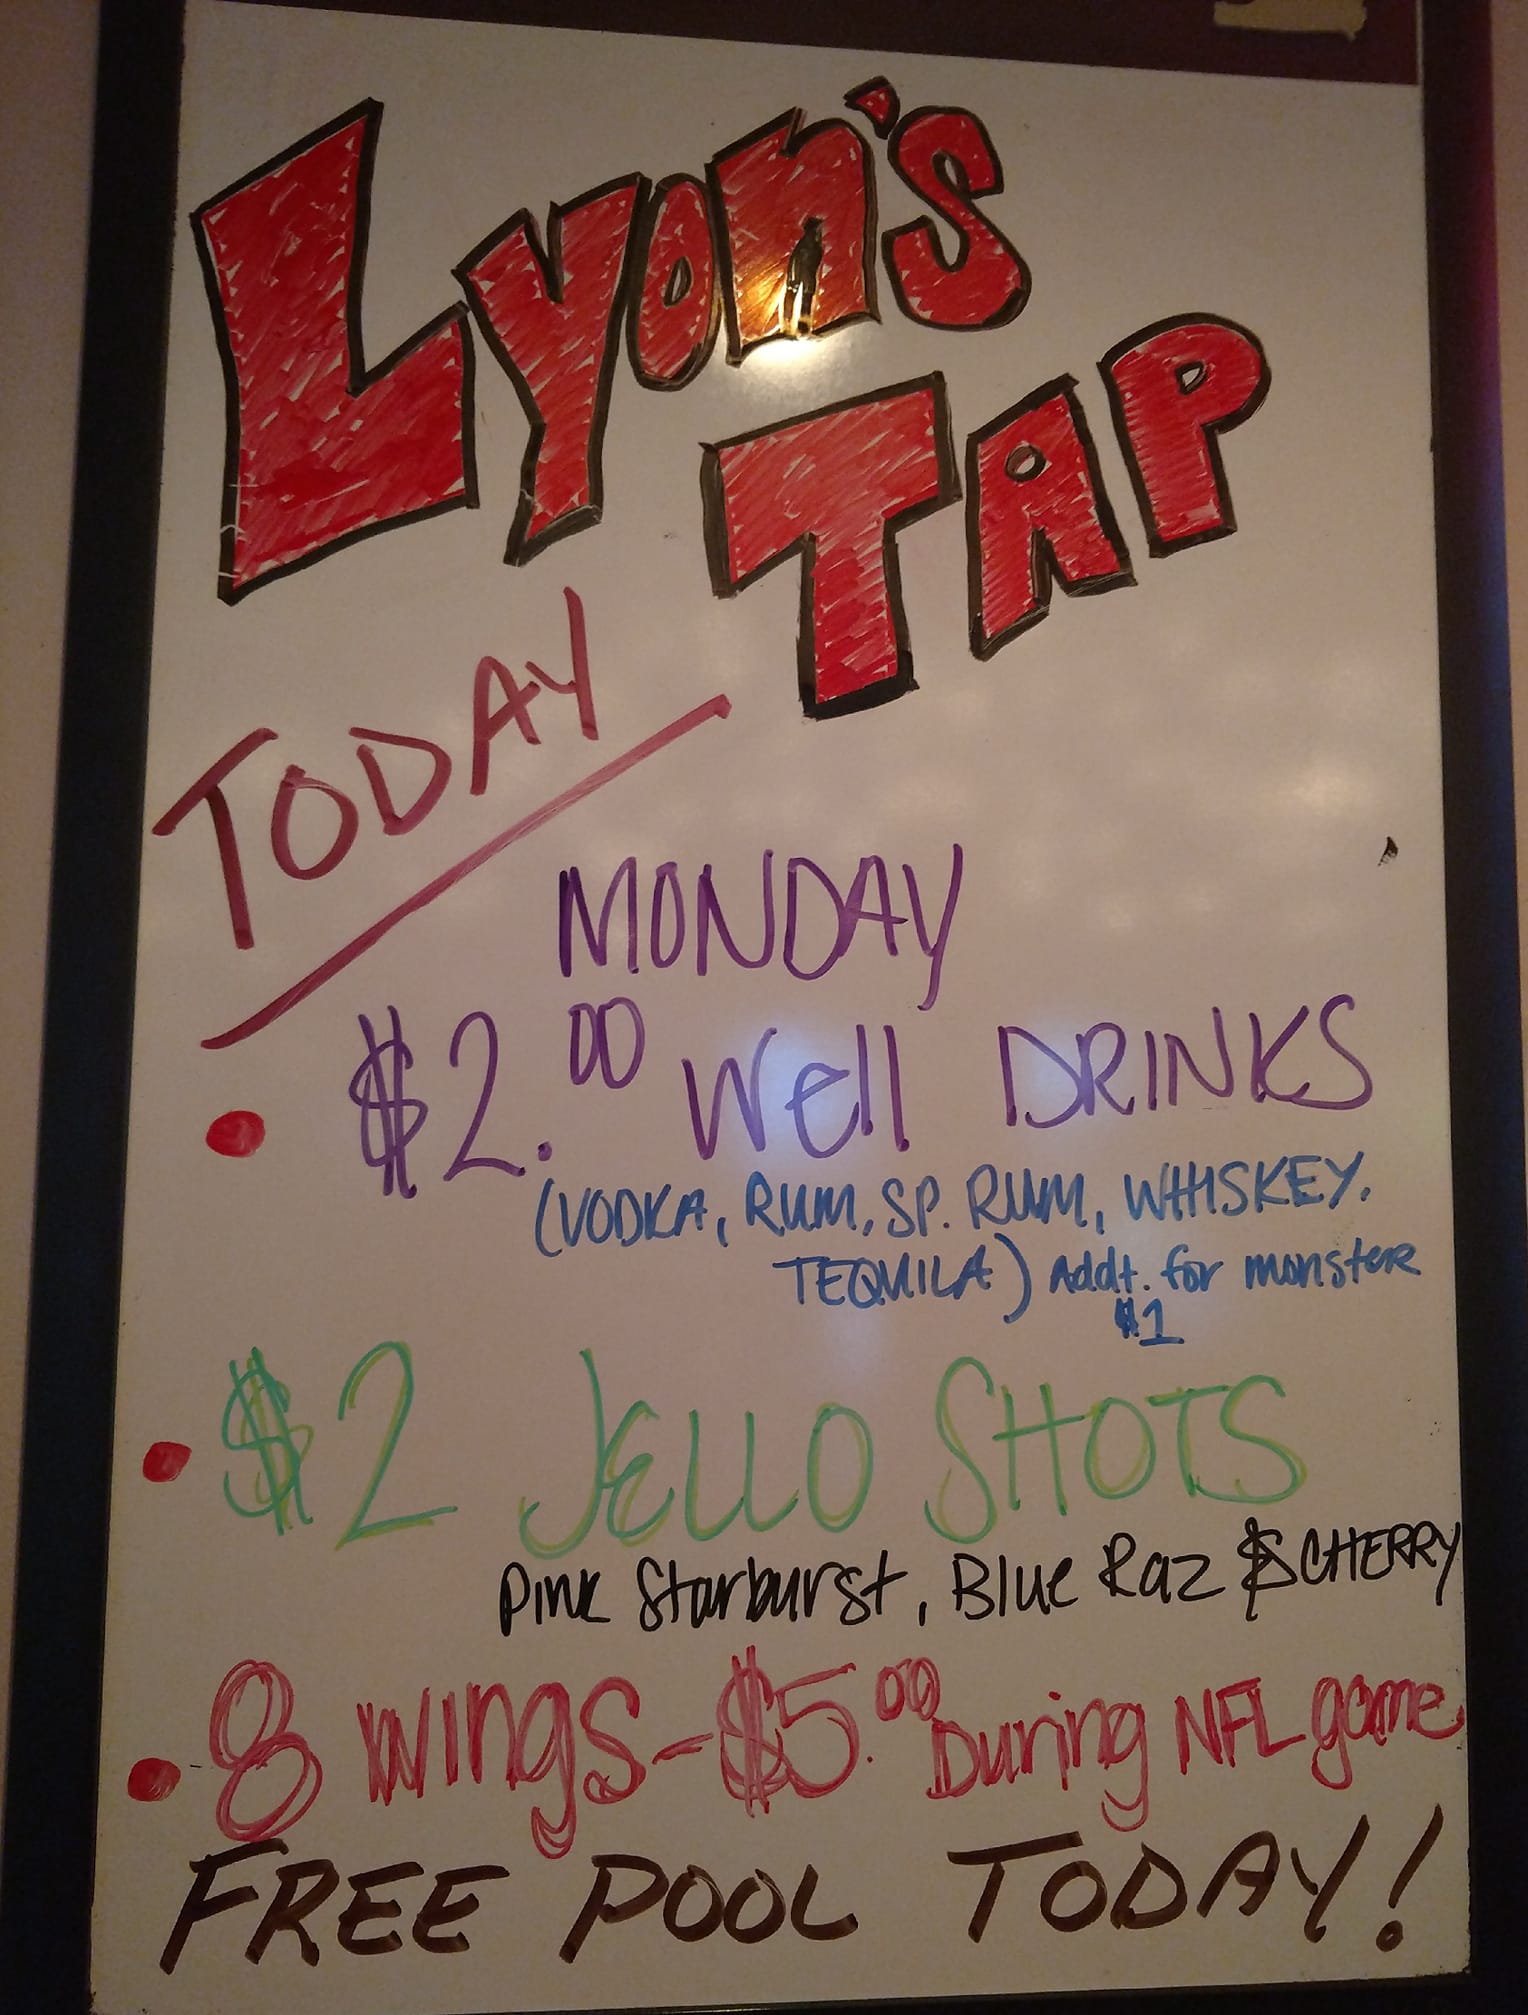 Lyon's
TAP
TODAY
MONDAY
• $2.00 Well DRINKS
(VODKA, RUM, SP. RUM, WHISKEY.
TEQUILA) Addt. for monster
$1
• $2 JELLO SHOTS
Pink Starburst, Blue Raz & CHERRY
• 8 wings - $5.00 During NFL game
FREE POOL TODAY!